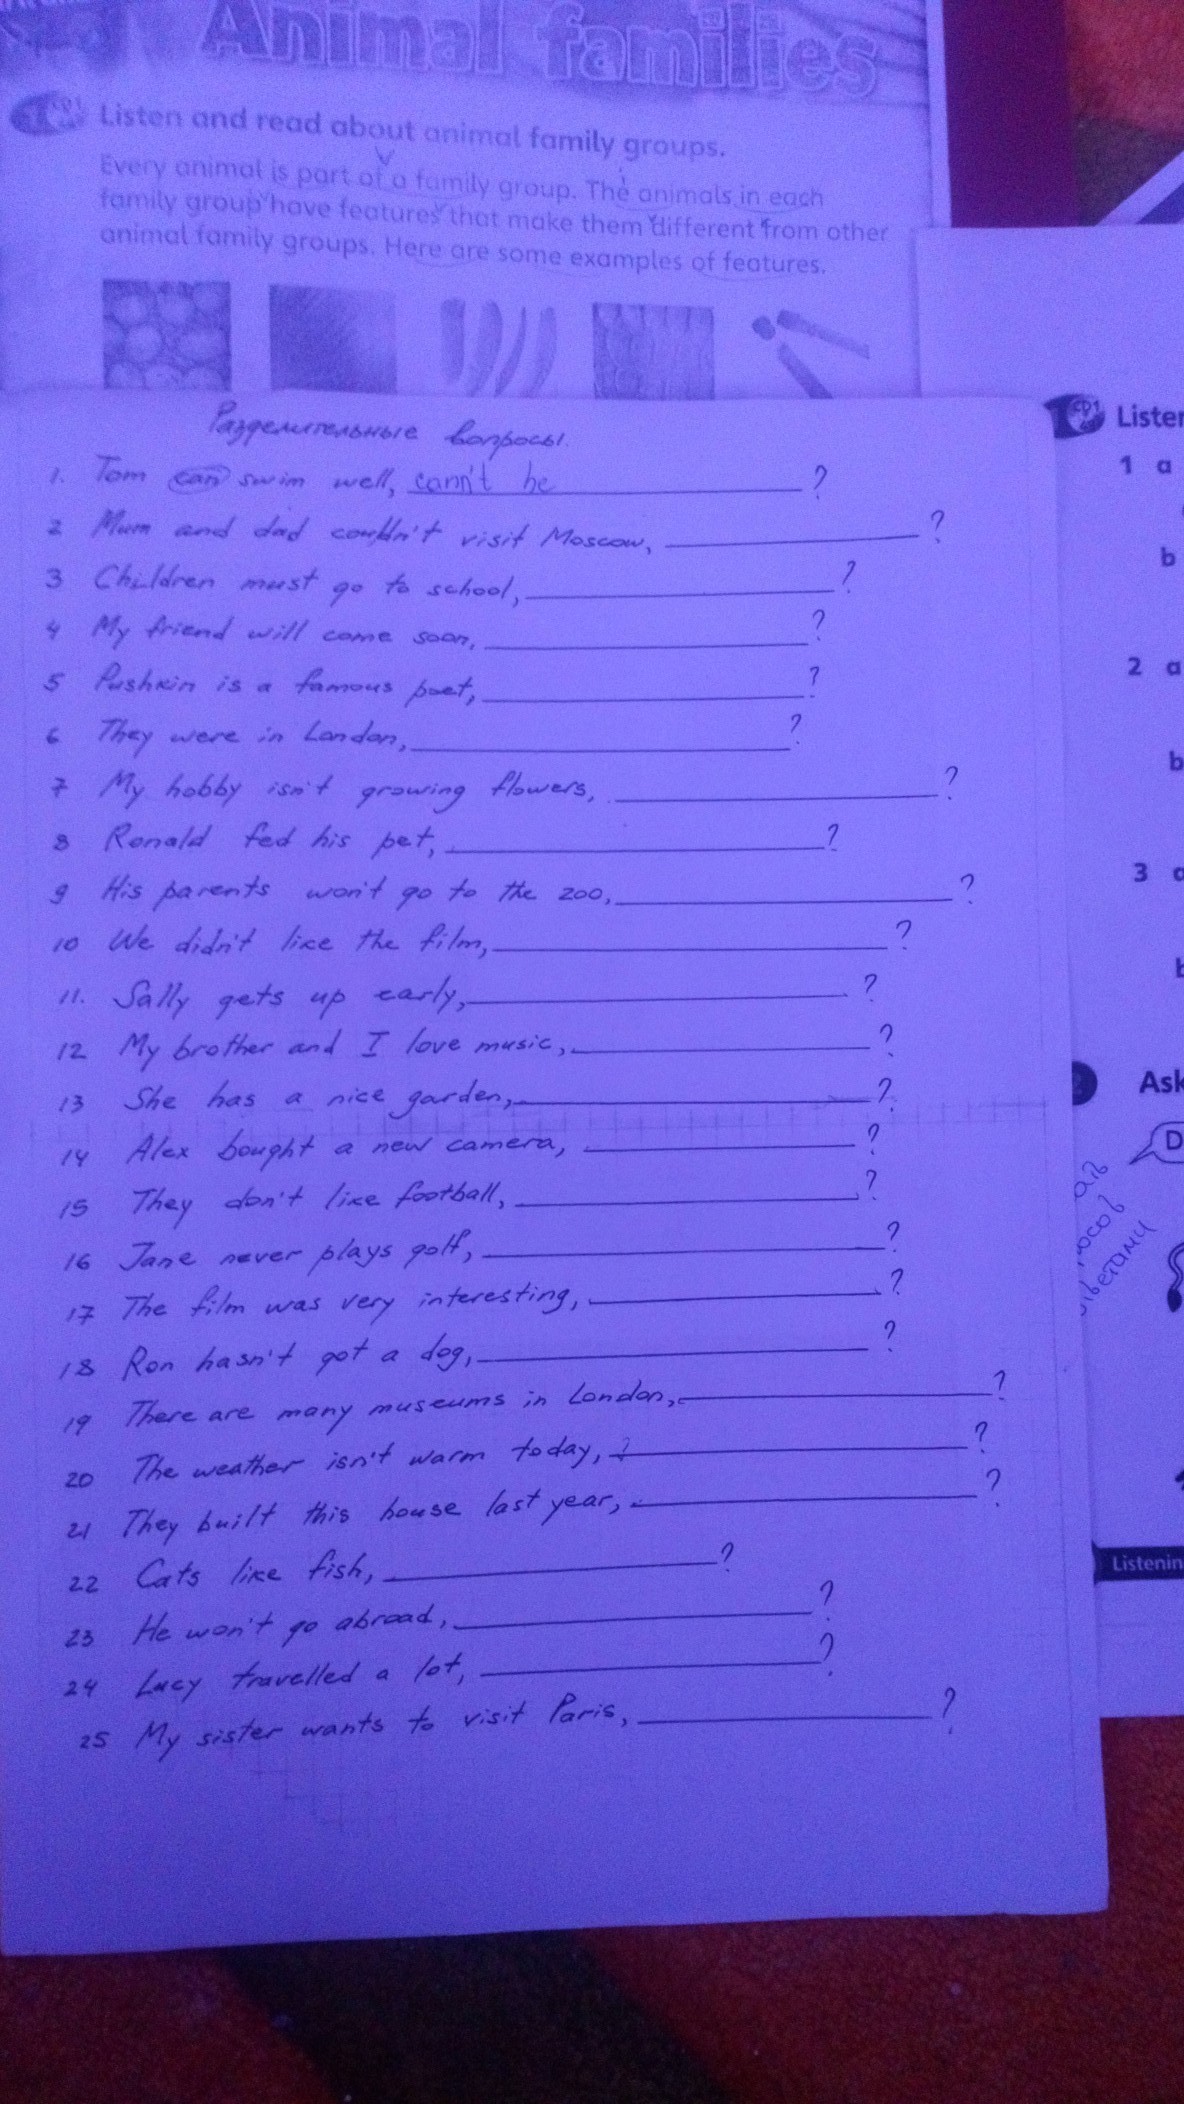 Animal families
CD1
Listen and read about animal family groups.
Every animal is part of a family group. The animals in each
family group have features that make them different from other
animal family groups. Here are some examples of features.
Разделительные вопросы.
1. Tom can swim well, cann't he ?
2 Mum and dad couldn't visit Moscow, ?
3 Children must go to school, ?
4 My friend will come soon, ?
5 Pushkin is a famous poet, ?
6 They were in London, ?
7 My hobby isn't growing flowers, ?
8 Ronald fed his pet, ?
9 His parents won't go to the zoo, ?
10 We didn't like the film, ?
11. Sally gets up early, ?
12 My brother and I love music, ?
13 She has a nice garden, ?
14 Alex bought a new camera, ?
15 They don't like football, ?
16 Jane never plays golf, ?
17 The film was very interesting, ?
18 Ron hasn't got a dog, ?
19 There are many museums in London, ?
20 The weather isn't warm today, ?
21 They built this house last year, ?
22 Cats like fish, ?
23 He won't go abroad, ?
24 Lucy travelled a lot, ?
25 My sister wants to visit Paris, ?
CD1
Listen
1 a
b
2 a
b
3 a
b
Ask
D
Listenin